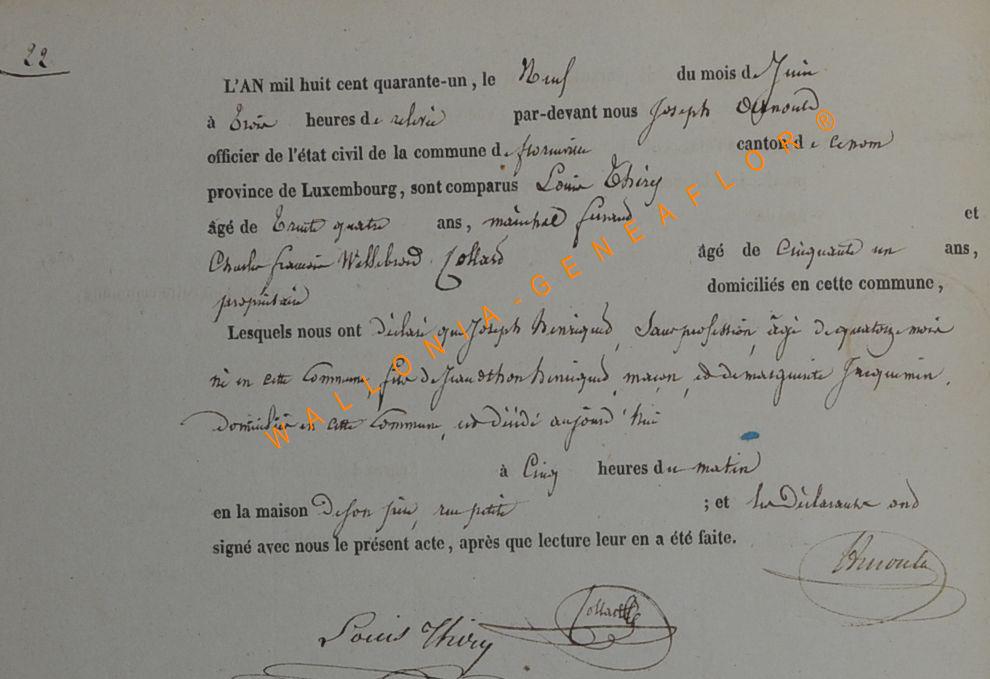 22
L'AN mil huit cent quarante-un, le Neuf du mois de Juin
à trois heures de relevée par-devant nous Joseph Arnould
officier de l'état civil de la commune de florenville canton de ce nom
province de Luxembourg, sont comparus Louis Thiry
âgé de trente quatre ans, maréchal ferrand et
Charles françois Willebrord Collard âgé de Cinquante un ans,
propriétaire domiciliés en cette commune,
Lesquels nous ont déclaré que Joseph henriquet, sans profession, âgé de quatorze mois
né en cette Commune, fils de Jean henriquet, maçon, et de marguerite Jacquemin,
domiciliés en cette Commune, est décédé aujourd'hui
à Cinq heures du matin
en la maison de son père, rue petite ; et les déclarants ont
signé avec nous le présent acte, après que lecture leur en a été faite.
Arnould
Collard
Louis Thiry
WALLONIA-GENEAFLOR ®